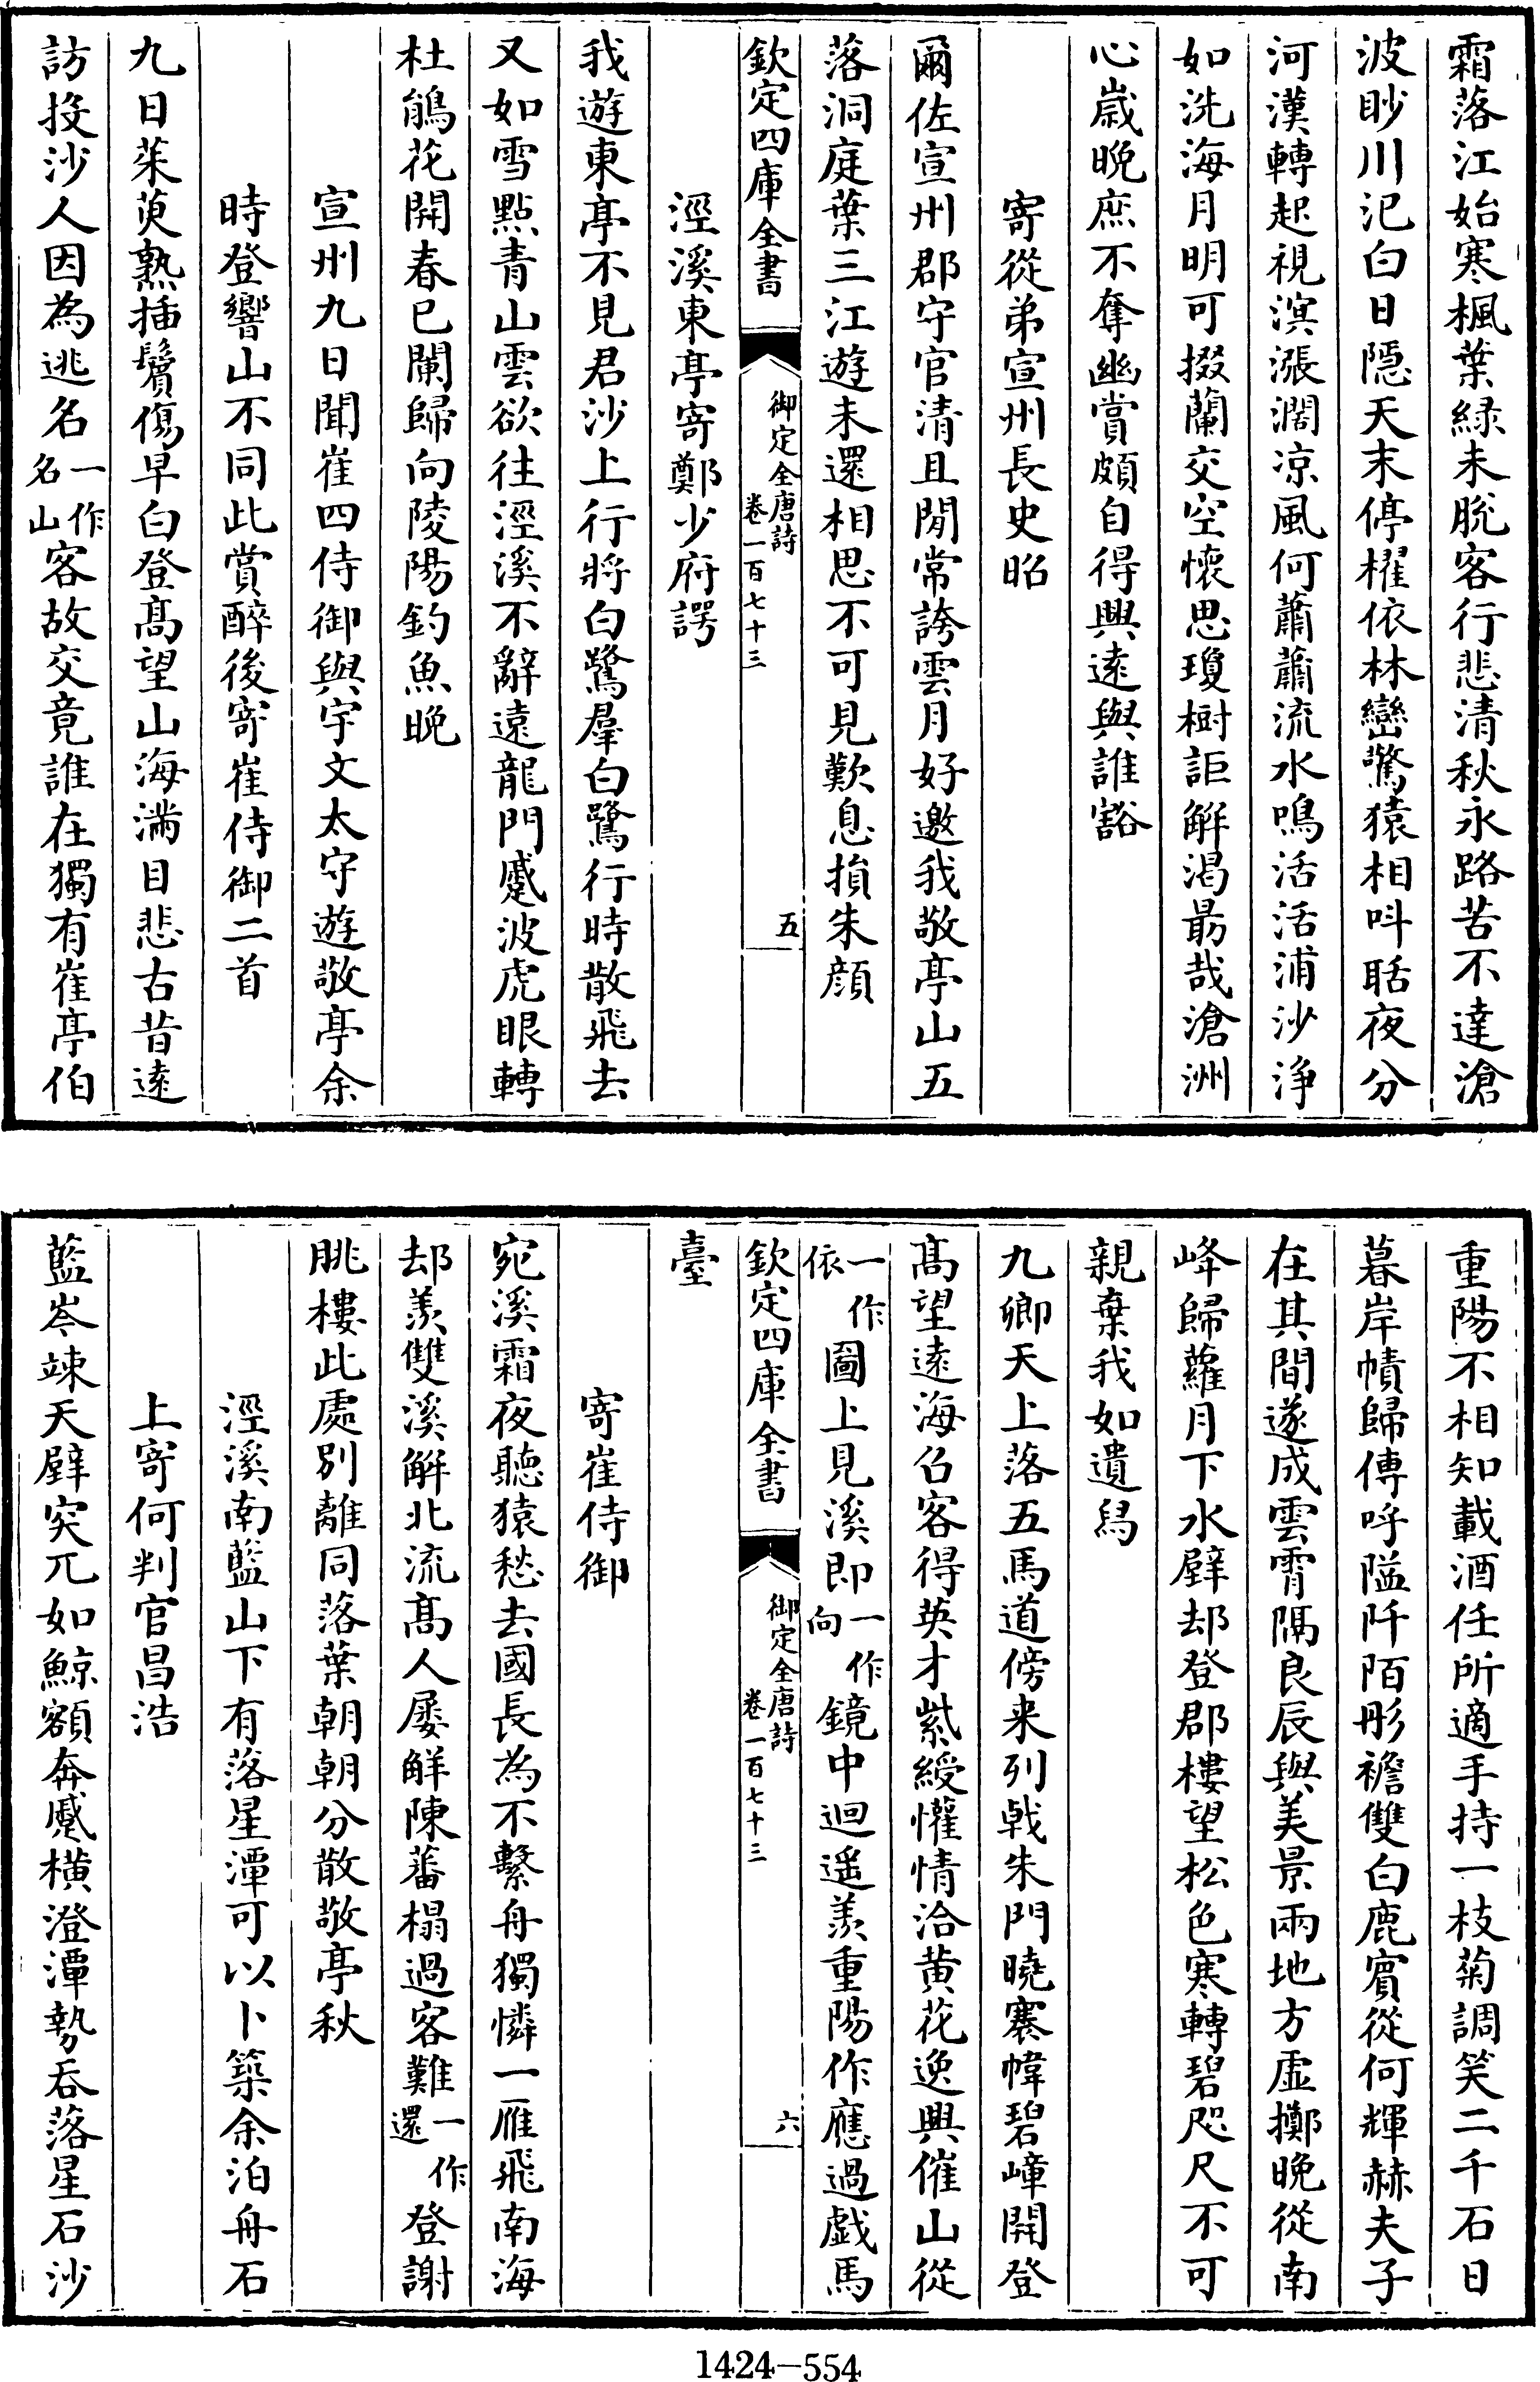 霜落江始寒楓葉緑未脫客行悲清秋永路苦不達滄
波眇川汜白日隱天末停櫂依林巒驚猿相呌聒夜分
河漢轉起視溟漲濶涼風何蕭蕭流水鳴活活浦沙淨
如洗海月明可掇蘭交空懷思瓊樹詎解渴朂哉滄洲
心歲晚庶不奪幽賞頗自得興逺與誰豁
寄從弟宣州長史昭
爾佐宣州郡守官清且閒常誇雲月好邀我敬亭山五
落洞庭葉三江遊未還相思不可見歎息損朱顔
欽定四庫全書 御定全唐詩 卷一百七十三 五
涇溪東亭寄鄭少府諤
我遊東亭不見君沙上行將白鷺羣白鷺行時散飛去
又如雪點青山雲欲往涇溪不辭遠龍門蹙波虎眼轉
杜鵑花開春已闌歸向陵陽釣魚晚
宣州九日聞崔四侍御與宇文太守遊敬亭余
時登響山不同此賞醉後寄崔侍御二首
九日茱萸熟插鬢傷早白登髙望山海滿目悲古昔逺
訪投沙人因為逃名一作名山客故交竟誰在獨有崔亭伯
重陽不相知載酒任所適手持一枝菊調笑二千石日
暮岸幘歸傳呼隘阡陌彤襜雙白鹿賓從何輝赫夫子
在其間遂成雲霄隔良辰與美景兩地方虛擲晚從南
峰歸蘿月下水壁却登郡樓望松色寒轉碧咫尺不可
親棄我如遺舄
九卿天上落五馬道傍来列戟朱門曉褰幃碧嶂開登
髙望逺海召客得英才紫綬懽情洽黄花逸興催山從
一作依圖上見溪即一作向鏡中迴遥羨重陽作應過戯馬
欽定四庫全書 御定全唐詩 卷一百七十三 六
臺
寄崔侍御
宛溪霜夜聽猿愁去國長為不繫舟獨憐一雁飛南海
却羨雙溪解北流髙人屢解陳蕃榻過客難一作還登謝
朓樓此處別離同落葉朝朝分散敬亭秋
涇溪南藍山下有落星潭可以卜築余泊舟石
上寄何判官昌浩
藍岑竦天壁突兀如鯨額奔蹙橫澄潭勢吞落星石沙
1424—554